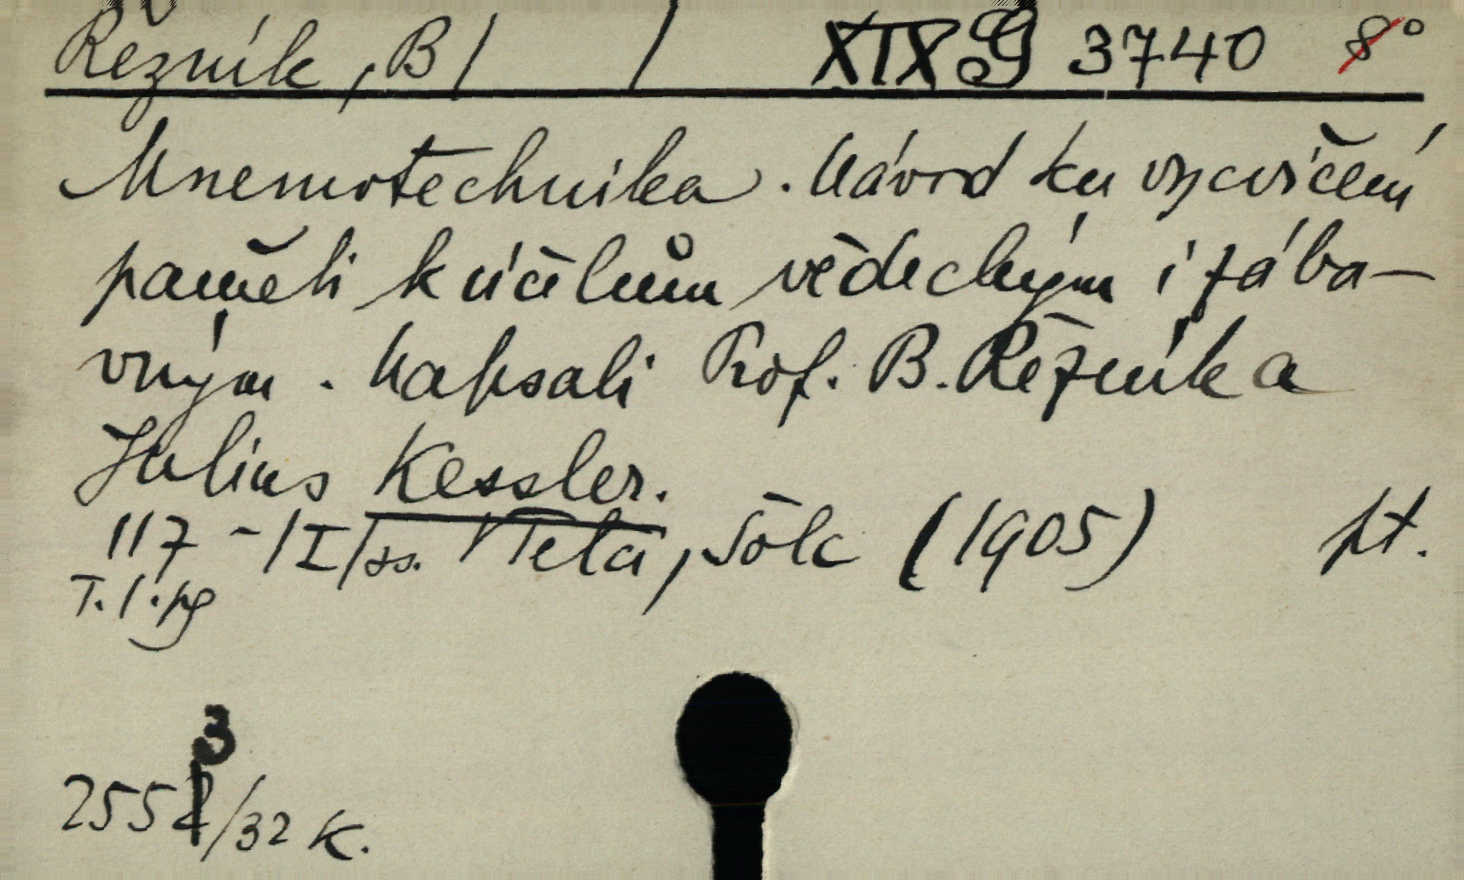 Řezník, B/ / XIX G 3740 8°
Mnemotechnika. Návod ku vycvičení
paměti k účelům vědeckým i zába-
vným. Napsali Prof. B. Řezník a
Julius Kessler.
117 - /I/ss. Telč, Šolc (1905) pt.
T. l. pg
255 3/32 K.